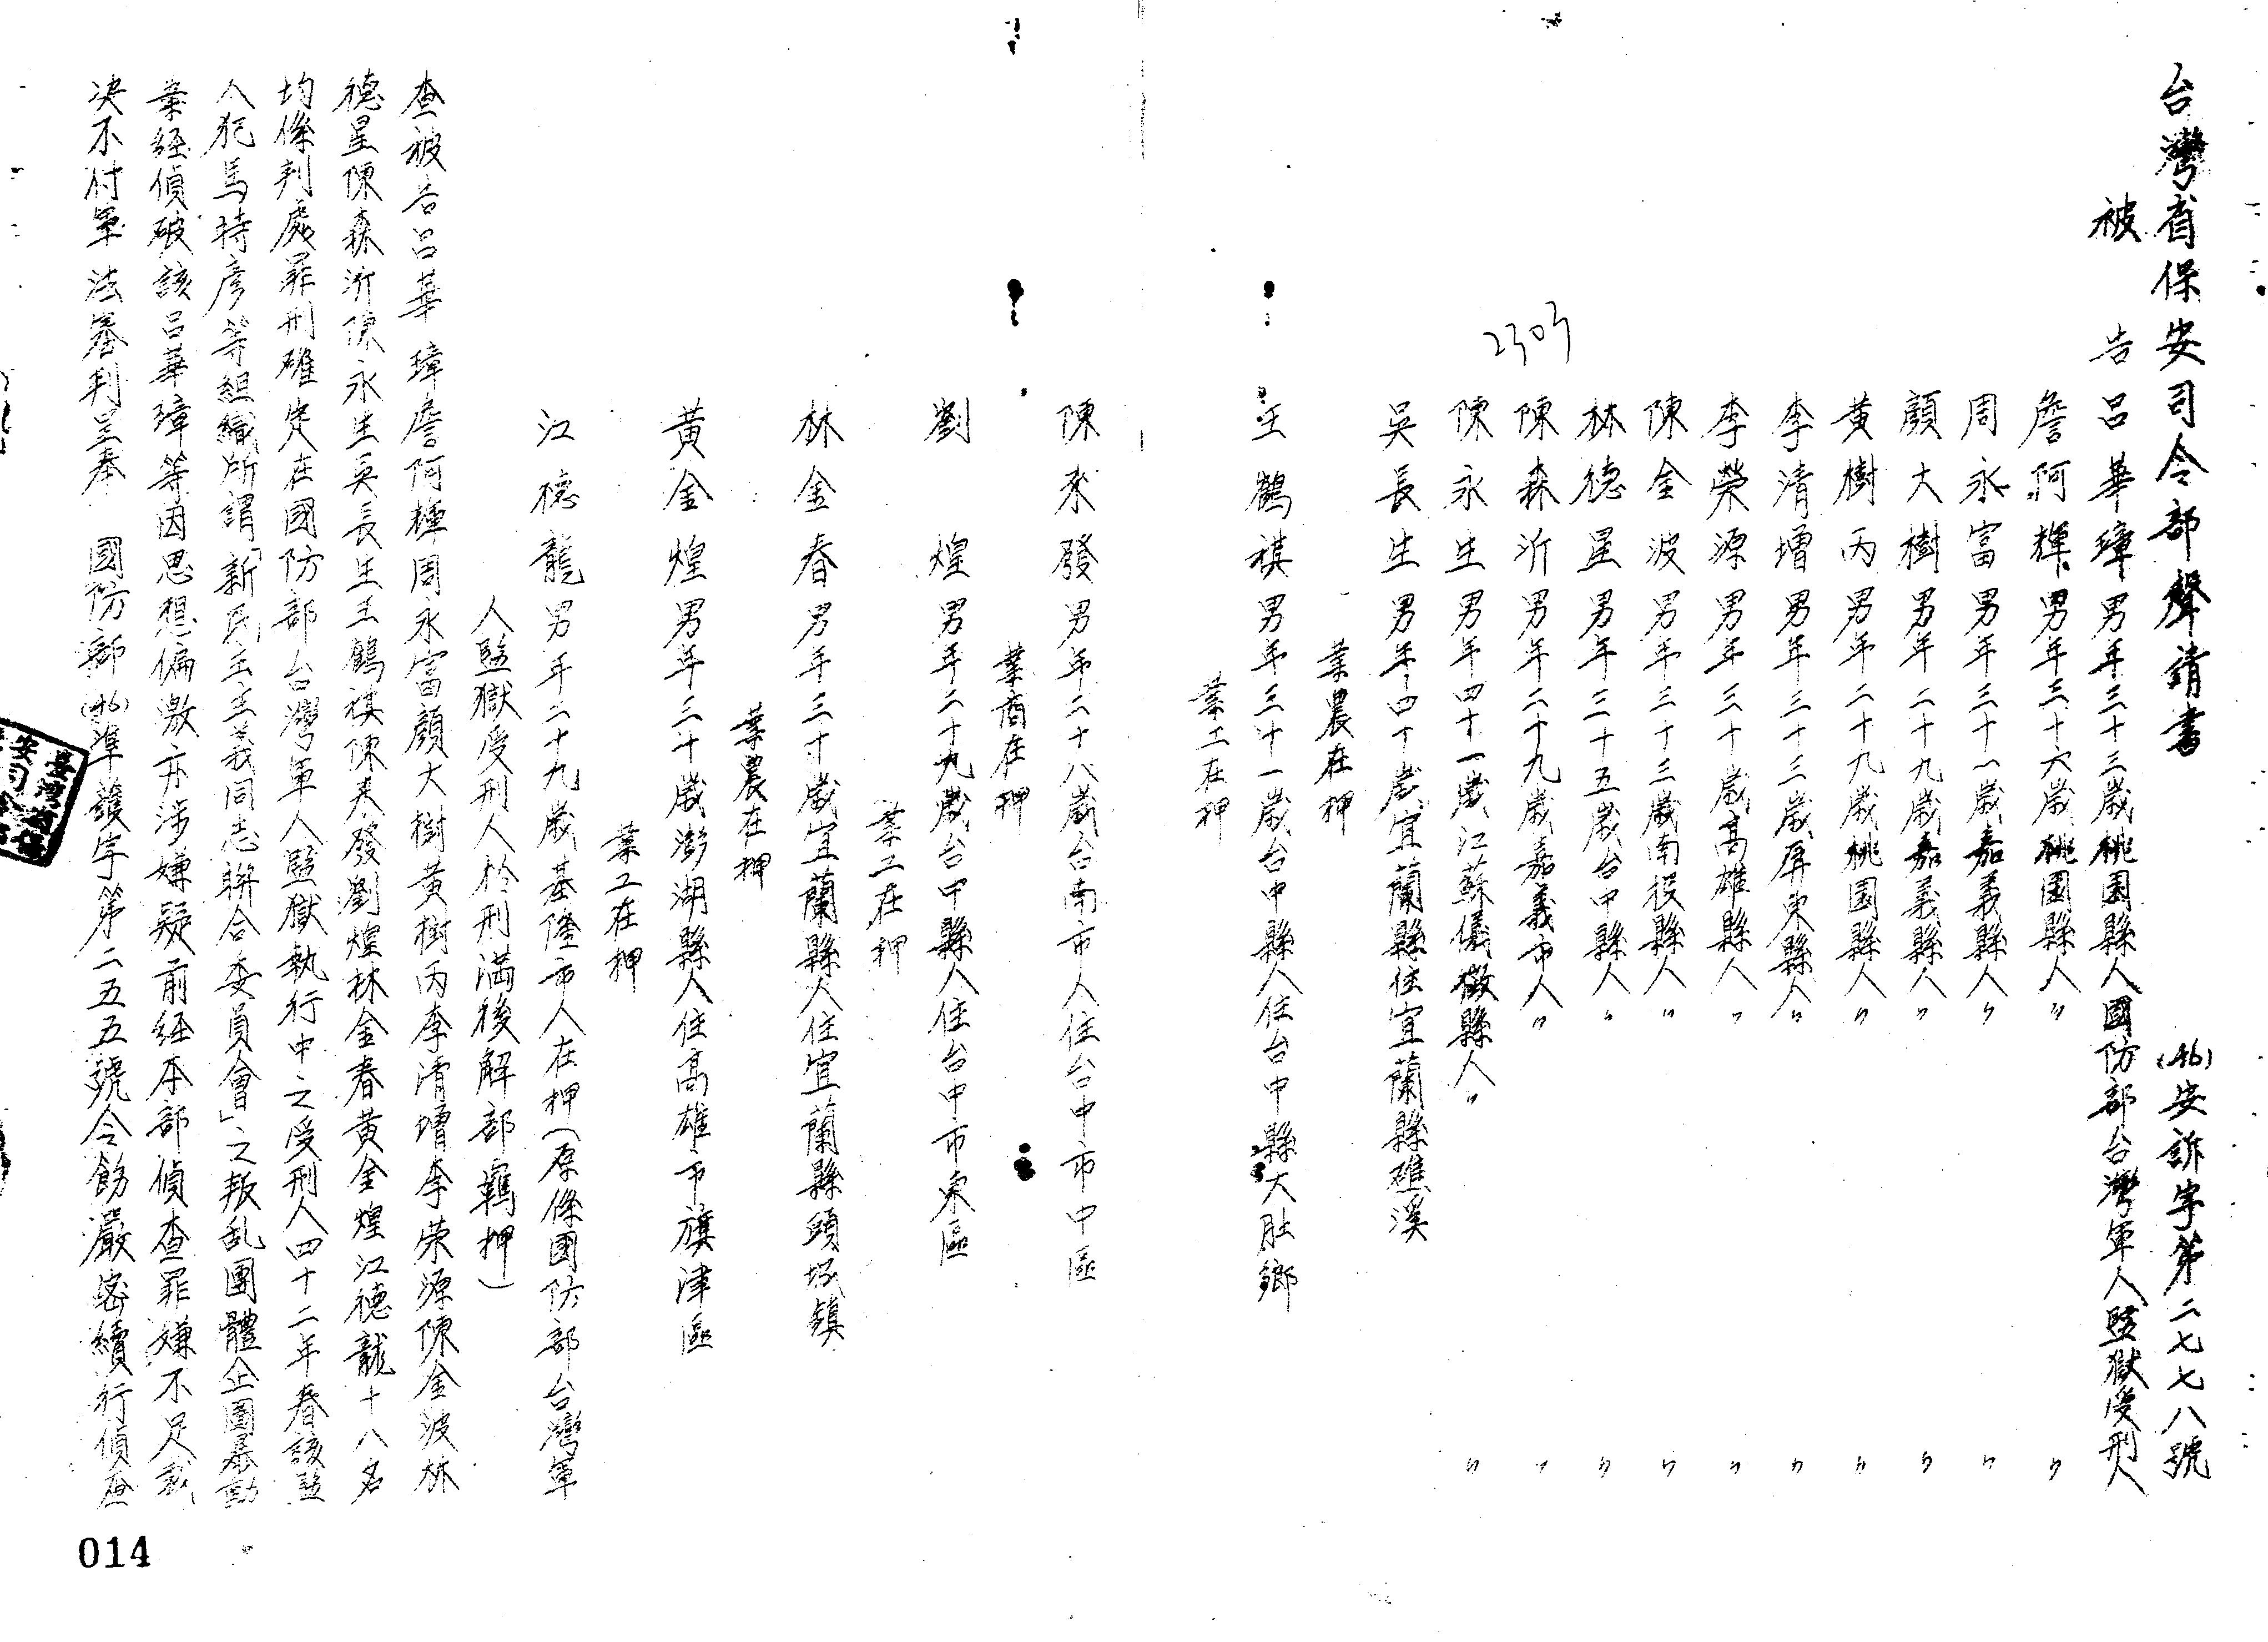 台灣省保安司令部聲請書
(46)安訴字第二七七八號
被告呂華璋男年三十三歲桃園縣人國防部台灣軍人監獄受刑人
詹阿輝男年三十六歲桃園縣人〃〃
周永富男年三十一歲嘉義縣人〃〃
顏大樹男年二十九歲嘉義縣人〃〃
黃樹丙男年二十九歲桃園縣人〃〃
李清增男年三十三歲屏東縣人〃〃
李榮源男年三十歲高雄縣人〃〃
陳金波男年三十三歲南投縣人〃〃
林德星男年三十五歲台中縣人〃〃
陳森沂男年二十九歲嘉義市人〃〃
陳永生男年四十一歲江蘇儀徵縣人〃〃
2303
吳長生男年四十歲宜蘭縣住宜蘭縣礁溪
業農在押
王鶴祺男年三十一歲台中縣人住台中縣大肚鄉
業工在押
陳來發男年二十八歲台南市人住台中市中區
業商在押
劉煌男年二十九歲台中縣人住台中市東區
業工在押
林金春男年三十歲宜蘭縣人住宜蘭縣頭城鎮
業農在押
黃金煌男年三十歲澎湖縣人住高雄市旗津區
業工在押
江德龍男年二十九歲基隆市人在押(原係國防部台灣軍
人監獄受刑人於刑滿後解部羈押)
查被告呂華璋詹阿輝周永富顏大樹黃樹丙李清增李榮源陳金波林
德星陳森沂陳永生吳長生王鶴祺陳來發劉煌林金春黃金煌江德龍十八名
均係判處罪刑確定在國防部台灣軍人監獄執行中之受刑人四十二年春該監
人犯馬特彥等組織所謂「新民主主義同志聯合委員會」之叛乱團體企圖暴動
業經偵破該呂華璋等因思想偏激亦涉嫌疑前經本部偵查罪嫌不足裁
決不付軍法審判呈奉 國防部(46)準護字第二五五號令飭嚴密續行偵查
014